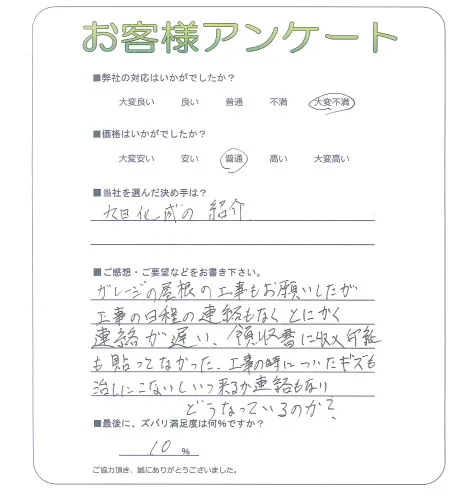 お客様アンケート
■弊社の対応はいかがでしたか？
大変良い 良い 普通 不満 大変不満
■価格はいかがでしたか？
大変安い 安い 普通 高い 大変高い
■当社を選んだ決め手は？
旭化成の 紹介
■ご感想・ご要望などをお書き下さい。
ガレージの屋根の工事もお願いしたが
工事の日程の連絡もなくとにかく
連絡が遅い、領収書に収入印紙
も貼ってなかった、工事の時についたキズも
治しにこないしいつ来るか連絡もない
どうなっているのか？
■最後に、ズバリ満足度は何％ですか？
10 ％
ご協力頂き、誠にありがとうございました。